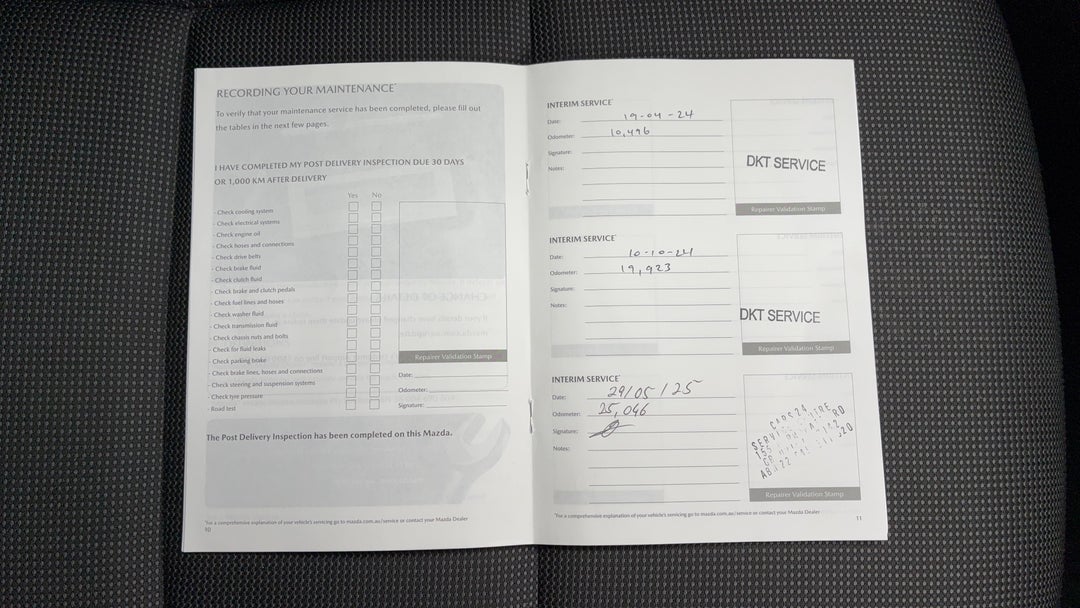 RECORDING YOUR MAINTENANCE*
To verify that your maintenance service has been completed, please fill out
the tables in the next few pages.
I HAVE COMPLETED MY POST DELIVERY INSPECTION DUE 30 DAYS
OR 1,000 KM AFTER DELIVERY
Yes No
- Check cooling system
- Check electrical systems
- Check engine oil
- Check hoses and connections
- Check drive belts
- Check brake fluid
- Check clutch fluid
- Check brake and clutch pedals
- Check fuel lines and hoses
- Check washer fluid
- Check transmission fluid
- Check chassis nuts and bolts
- Check for fluid leaks
- Check parking brake
- Check brake lines, hoses and connections
- Check steering and suspension systems
- Check tyre pressure
- Road test
Repairer Validation Stamp
Date:
Odometer:
Signature:
The Post Delivery Inspection has been completed on this Mazda.
*For a comprehensive explanation of your vehicle's servicing go to mazda.com.au/service or contact your Mazda Dealer
10
INTERIM SERVICE*
Date: 19-04-24
Odometer: 10,496
Signature:
Notes:
DKT SERVICE
Repairer Validation Stamp
INTERIM SERVICE*
Date: 10-10-24
Odometer: 19,923
Signature:
Notes:
DKT SERVICE
Repairer Validation Stamp
INTERIM SERVICE*
Date: 29/05/25
Odometer: 25,046
Signature:
Notes:
CARS24
Repairer Validation Stamp
*For a comprehensive explanation of your vehicle's servicing go to mazda.com.au/service or contact your Mazda Dealer
11